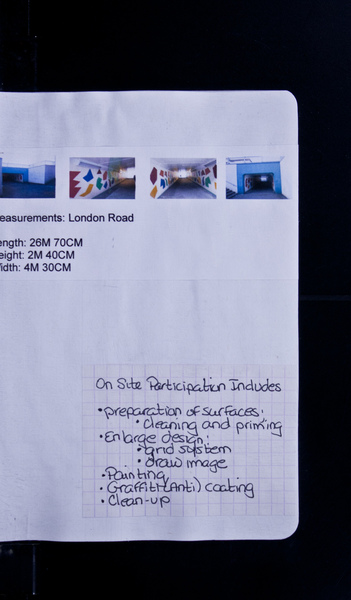 easurements: London Road
ength: 26M 70CM
eight: 2M 40CM
idth: 4M 30CM
On Site Participation Includes
• preparation of surfaces:
• cleaning and priming
• Enlarge design:
• grid system
• draw image
• Painting
• Graffiti (Anti) coating
• Clean-up